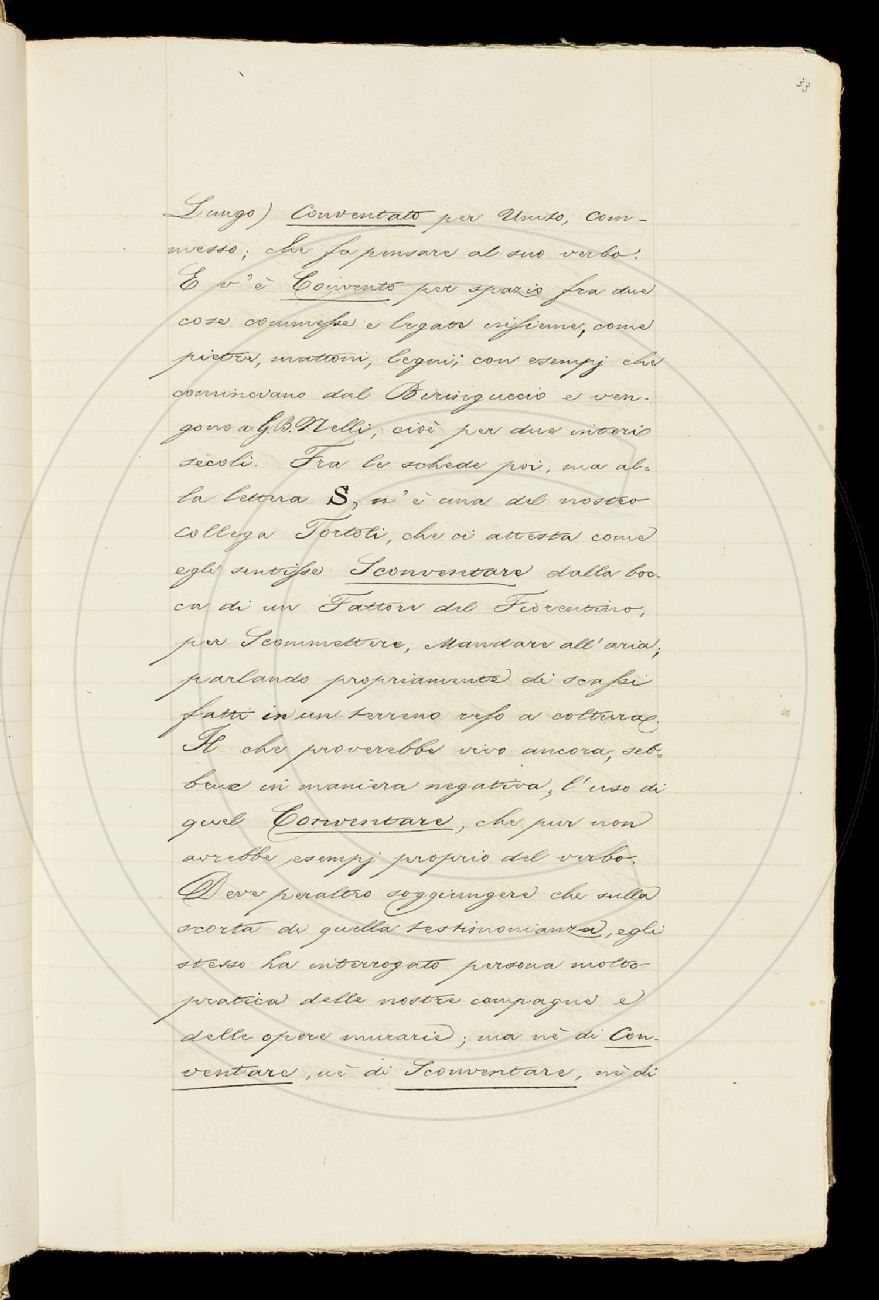 33
Lungo) Conventato per Unito, Com-
messo; che fa pensare al suo verbo.
E v'è Coivento per spazio fra due
cose commesse e legate insieme, come
pietre, mattoni, legni; con esempj che
cominciano dal Biringuccio e ven-
gono a G. B. Nelli, cioè per due interi
secoli. Fra le schede poi, ma al-
la lettera S, n'è una del nostro
Collega Tortoli, che ci attesta come
egli sentisse Sconventare dalla boc-
ca di un Fattore del Fiorentino,
per Scommettere, Mandare all'aria,
parlando propriamente di scassi
fatti in un terreno reso a coltura.
Il che proverebbe vivo ancora, seb-
bene in maniera negativa, l'uso di
quel Conventare, che pur non
avrebbe esempj proprio del verbo.
Deve peraltro soggiungere che sulla
scorta di quella testimonianza, egli
stesso ha interrogato persona molto
pratica delle nostre campagne e
delle opere murarie; ma nè di Con-
ventare, nè di Sconventare, nè di